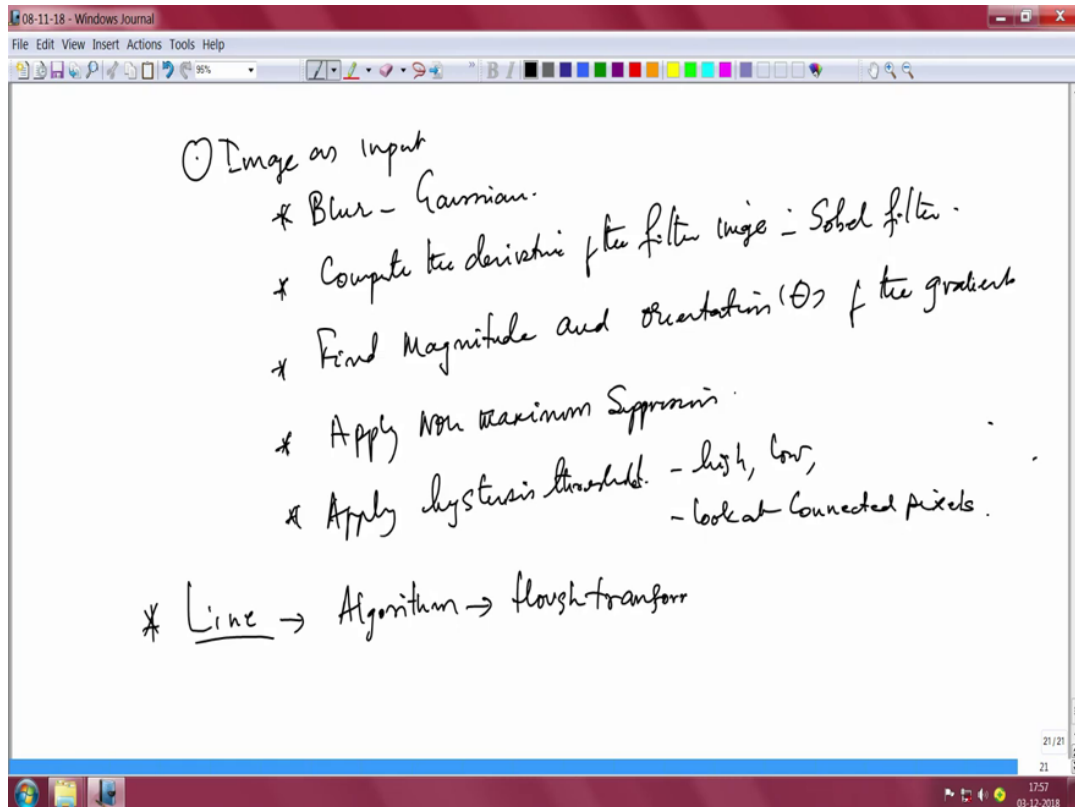 08-11-18 - Windows Journal
File Edit View Insert Actions Tools Help
95%
B I
Image as input
* Blur - Gaussian.
* Compute the derivative of the filter image - Sobel filter.
* Find Magnitude and orientation (θ) of the gradient
* Apply Non maximum Suppression.
* Apply hysterisis threshold. - high, low,
- look at Connected pixels.
* Line → Algorithm → Hough transform
21/21
21
17:57
03-12-2018